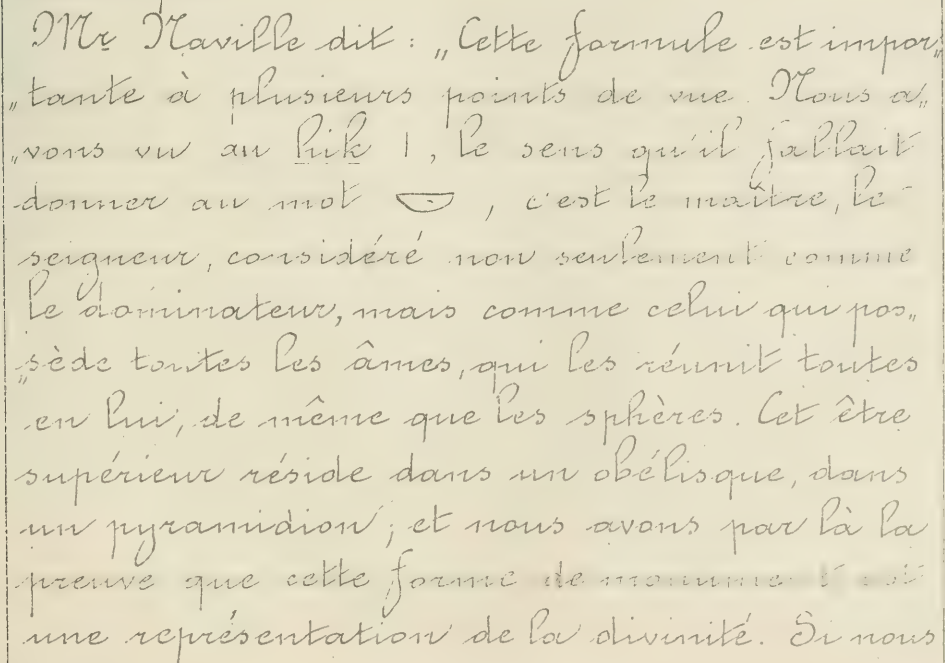 Mr Naville dit : „Cette formule est impor„
„tante à plusieurs points de vue. Nous a„
„vons vu au hik 1, le sens qu'il fallait
donner au mot 𓎟, c'est le maître, le
seigneur, considéré non seulement comme
le dominateur, mais comme celui qui pos„
„sède toutes les âmes, qui les réunit toutes
en lui, de même que les sphères. Cet être
supérieur réside dans un obélisque, dans
un pyramidion ; et nous avons par là la
preuve que cette forme de monument est
une représentation de la divinité. Si nous